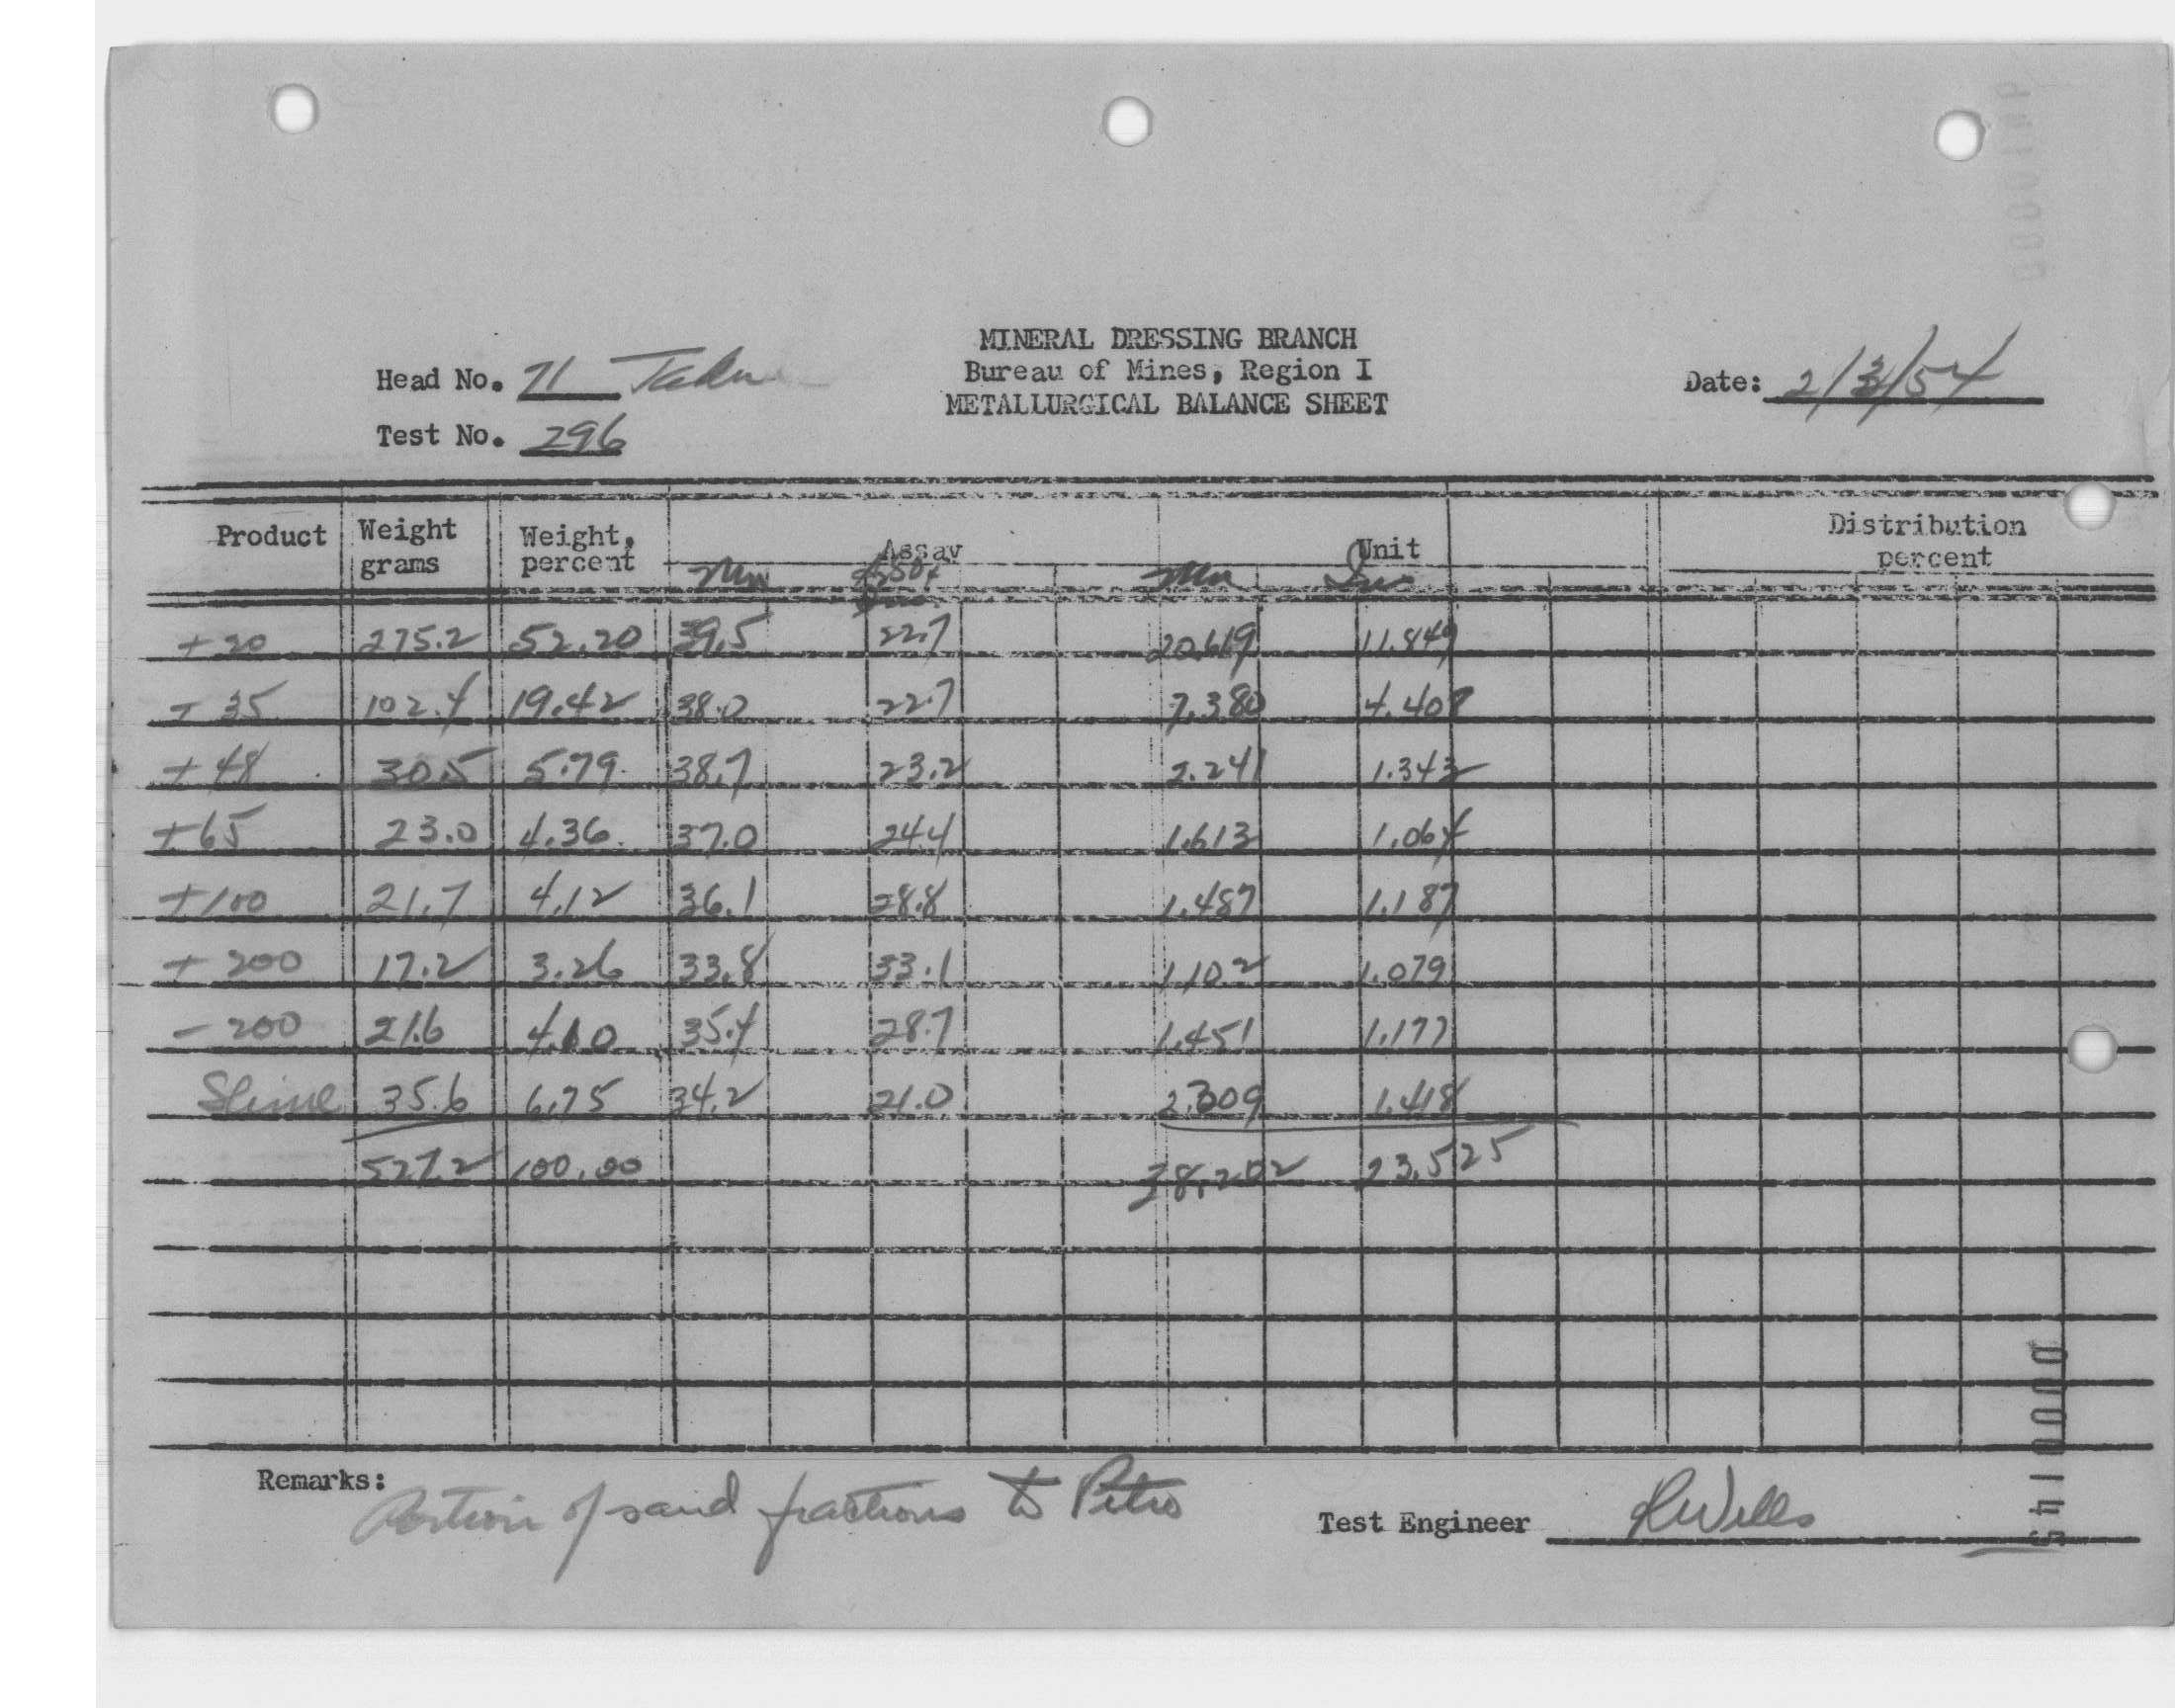 MINERAL DRESSING BRANCH
Head No. 71 Bureau of Mines, Region I Date: 2/3/54
METALLURGICAL BALANCE SHEET
Test No. 296
Product Weight grams Weight, percent Assay Unit Distribution percent
Mn Ins Mn Ins
+20 275.2 52.20 39.5 22.7 20.619 11.849
+35 102.4 19.42 38.0 22.7 7.380 4.408
+48 30.5 5.79 38.7 23.2 2.241 1.343
+65 23.0 4.36 37.0 24.4 1.613 1.064
+100 21.7 4.12 36.1 28.8 1.487 1.187
+200 17.2 3.26 33.8 33.1 1.102 1.079
-200 21.6 4.10 35.4 28.7 1.451 1.177
Slime 35.6 6.75 34.2 21.0 2.309 1.418
527.2 100.00 38.202 23.525
Remarks: Portion of sand fractions to Petro
Test Engineer RWells
0000145